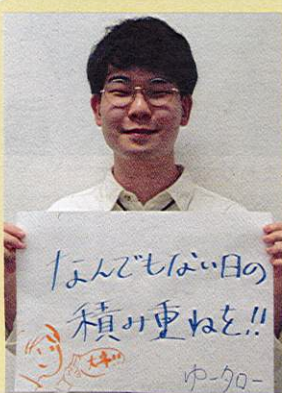 なんでもない日の
積み重ねを!!
ゆータロー